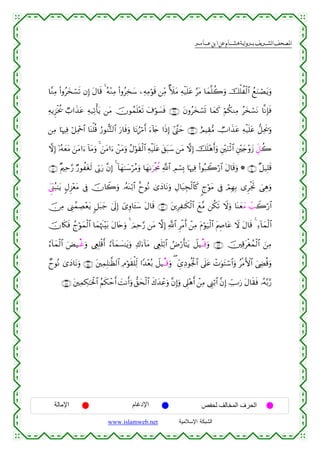 المصحف الشريف برواية هشام عن ابن عامر
وَيَصْنَعُ ٱلْفُلْكَ وَكُلَّمَا مَرَّ عَلَيْهِ مَلَأٌ مِّن قَوْمِهِۦ سَخِرُوا۟ مِنْهُ ۚ قَالَ إِن تَسْخَرُوا۟ مِنَّا
فَإِنَّا نَسْخَرُ مِنكُمْ كَمَا تَسْخَرُونَ فَسَوْفَ تَعْلَمُونَ مَن يَأْتِيهِ عَذَابٌ يُخْزِيهِ
وَيَحِلُّ عَلَيْهِ عَذَابٌ مُّقِيمٌ حَتَّىٰٓ إِذَا جَآءَ أَمْرُنَا وَفَارَ ٱلتَّنُّورُ قُلْنَا ٱحْمِلْ فِيهَا مِن
كُلِّ زَوْجَيْنِ ٱثْنَيْنِ وَأَهْلَكَ إِلَّا مَن سَبَقَ عَلَيْهِ ٱلْقَوْلُ وَمَنْ ءَامَنَ ۚ وَمَآ ءَامَنَ مَعَهُۥٓ إِلَّا
قَلِيلٌ ۞ وَقَالَ ٱرْكَبُوا۟ فِيهَا بِسْمِ ٱللَّهِ مُجْرَىٰهَا وَمُرْسَىٰهَآ ۚ إِنَّ رَبِّى لَغَفُورٌ رَّحِيمٌ
وَهِىَ تَجْرِى بِهِمْ فِى مَوْجٍ كَٱلْجِبَالِ وَنَادَىٰ نُوحٌ ٱبْنَهُۥ وَكَانَ فِى مَعْزِلٍ يَٰبُنَىِّ
ٱرْكَب مَّعَنَا وَلَا تَكُن مَّعَ ٱلْكَٰفِرِينَ قَالَ سَـَٔاوِىٓ إِلَىٰ جَبَلٍ يَعْصِمُنِى مِنَ
ٱلْمَآءِ ۚ قَالَ لَا عَاصِمَ ٱلْيَوْمَ مِنْ أَمْرِ ٱللَّهِ إِلَّا مَن رَّحِمَ ۚ وَحَالَ بَيْنَهُمَا ٱلْمَوْجُ فَكَانَ
مِنَ ٱلْمُغْرَقِينَ وَقِيلَ يَٰٓأَرْضُ ٱبْلَعِى مَآءَكِ وَيَٰسَمَآءُ أَقْلِعِى وَغِيضَ ٱلْمَآءُ
وَقُضِىَ ٱلْأَمْرُ وَٱسْتَوَتْ عَلَى ٱلْجُودِىِّ ۖ وَقِيلَ بُعْدًا لِّلْقَوْمِ ٱلظَّٰلِمِينَ وَنَادَىٰ نُوحٌ
رَّبَّهُۥ فَقَالَ رَبِّ إِنَّ ٱبْنِى مِنْ أَهْلِى وَإِنَّ وَعْدَكَ ٱلْحَقُّ وَأَنتَ أَحْكَمُ ٱلْحَٰكِمِينَ
الحرف المخالف لحفص الإدغام الإمالة
الشبكة الإسلامية www.islamweb.net